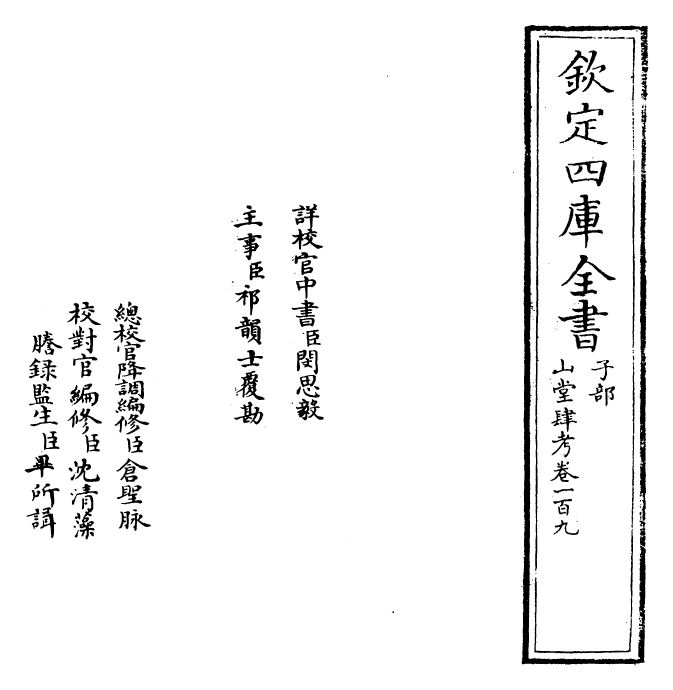 欽定四庫全書
子部
山堂肆考卷一百九
詳校官中書臣閔思毅
主事臣祁韻士覆勘
總校官降調編修臣倉聖脉
校對官編修臣沈清藻
謄録監生臣畢所譐